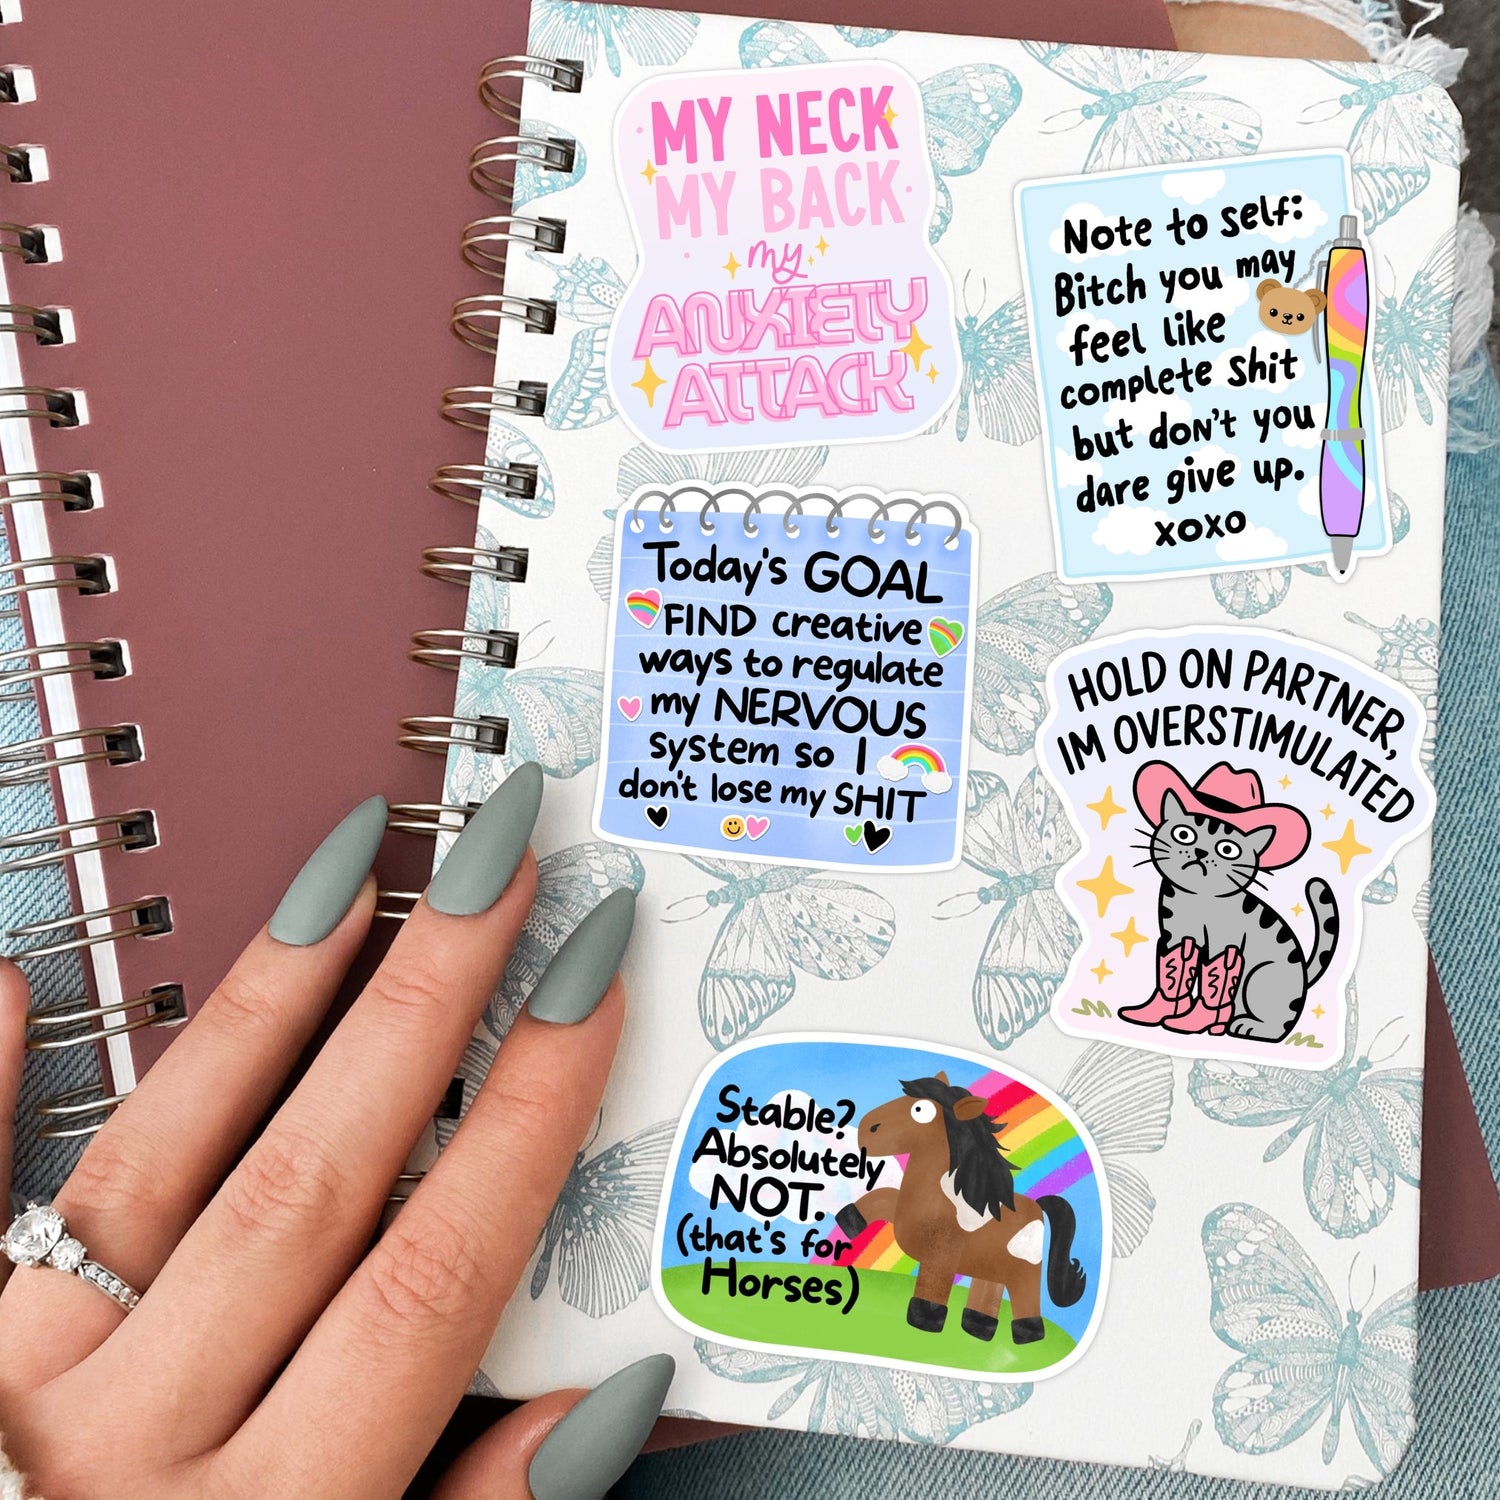 MY NECK
MY BACK
my
ANXIETY
ATTACK
Note to self:
Bitch you may
feel like
complete shit
but don't you
dare give up.
xoxo
Today's GOAL
FIND creative
ways to regulate
my NERVOUS
system so I
don't lose my SHIT
HOLD ON PARTNER,
IM OVERSTIMULATED
Stable?
Absolutely
NOT.
(that's for
Horses)